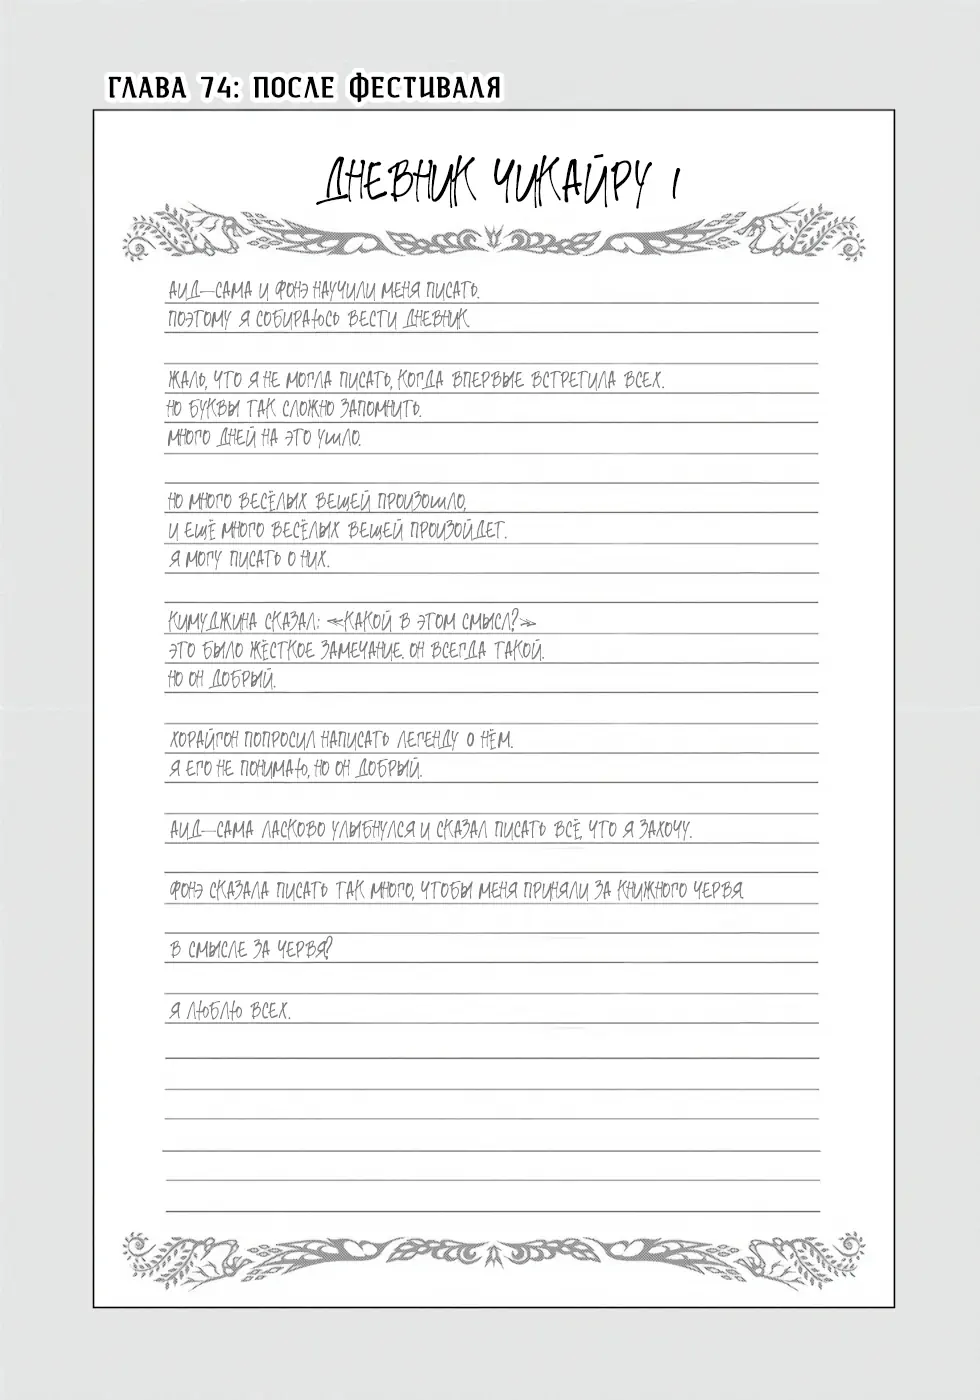 ГЛАВА 74: ПОСЛЕ ФЕСТИВАЛЯ
ДНЕВНИК ЧИКАЙРУ 1
АИД-САМА И ФОНЭ НАУЧИЛИ МЕНЯ ПИСАТЬ.
ПОЭТОМУ Я СОБИРАЮСЬ ВЕСТИ ДНЕВНИК
ЖАЛЬ, ЧТО Я НЕ МОГЛА ПИСАТЬ, КОГДА ВПЕРВЫЕ ВСТРЕТИЛА ВСЕХ.
НО БУКВЫ ТАК СЛОЖНО ЗАПОМНИТЬ.
МНОГО ДНЕЙ НА ЭТО УШЛО.
НО МНОГО ВЕСЁЛЫХ ВЕЩЕЙ ПРОИЗОШЛО,
И ЕЩЁ МНОГО ВЕСЁЛЫХ ВЕЩЕЙ ПРОИЗОЙДЕТ.
Я МОГУ ПИСАТЬ О НИХ.
КИМУДЖИНА СКАЗАЛ: «КАКОЙ В ЭТОМ СМЫСЛ?»
ЭТО БЫЛО ЖЁСТКОЕ ЗАМЕЧАНИЕ. ОН ВСЕГДА ТАКОЙ.
НО ОН ДОБРЫЙ.
ХОРАЙГОН ПОПРОСИЛ НАПИСАТЬ ЛЕГЕНДУ О НЁМ.
Я ЕГО НЕ ПОНИМАЮ, НО ОН ДОБРЫЙ.
АИД-САМА ЛАСКОВО УЛЫБНУЛСЯ И СКАЗАЛ ПИСАТЬ ВСЁ, ЧТО Я ЗАХОЧУ.
ФОНЭ СКАЗАЛА ПИСАТЬ ТАК МНОГО, ЧТОБЫ МЕНЯ ПРИНЯЛИ ЗА КНИЖНОГО ЧЕРВЯ
В СМЫСЛЕ ЗА ЧЕРВЯ?
Я ЛЮБЛЮ ВСЕХ.